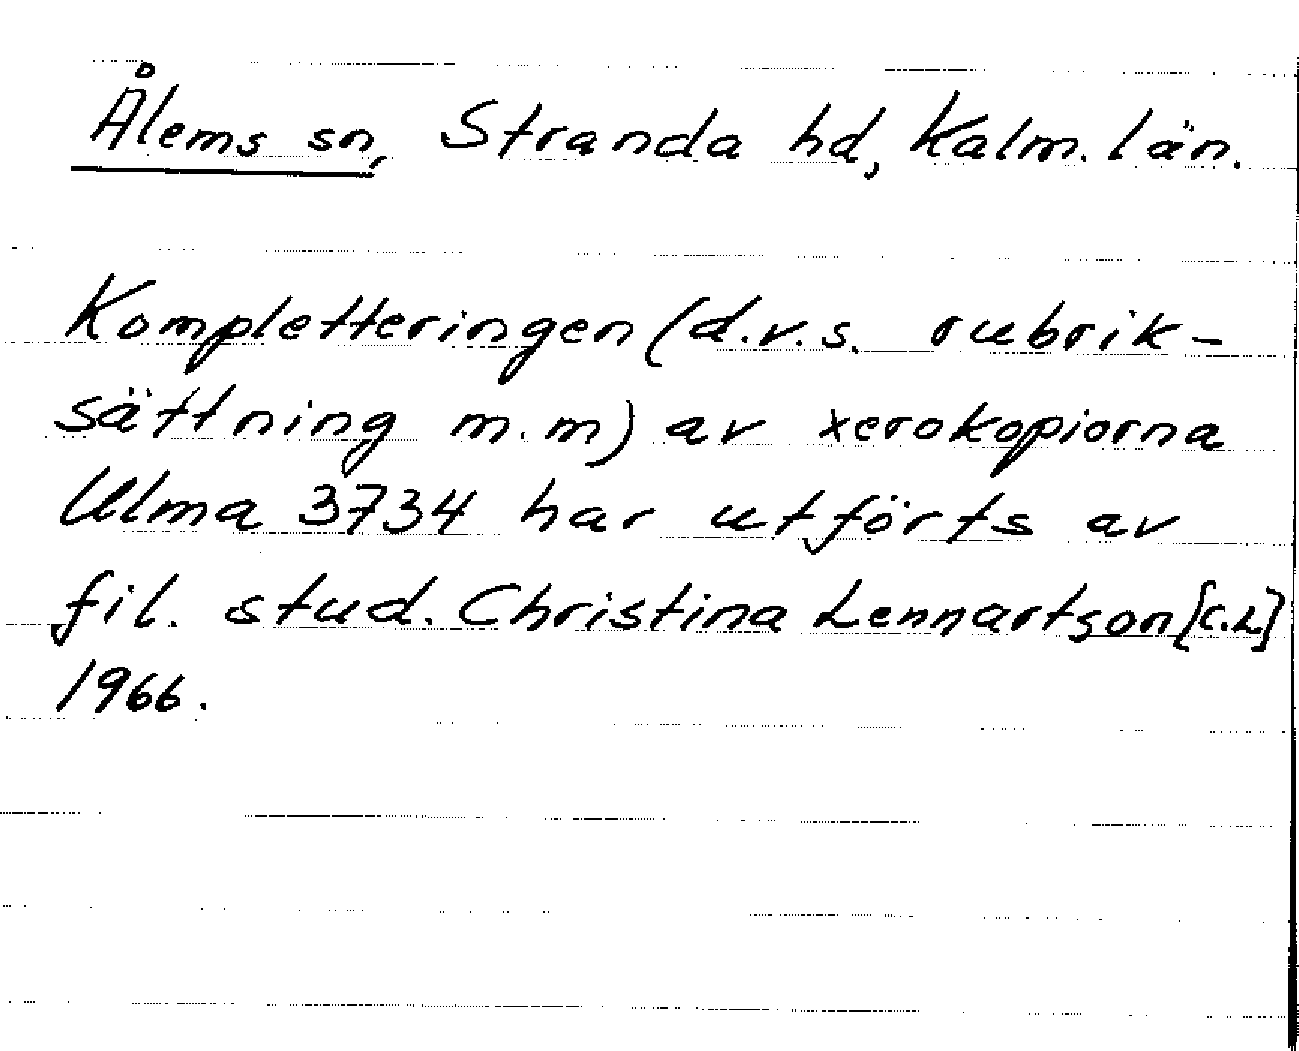 Ålems sn, Stranda hd, Kalm. län.
Kompletteringen (d.v.s. rubrik-
sättning m.m) av xerokopiorna
Ulma 3734 har utförts av
fil. stud. Christina Lennartson [C.L]
1966.